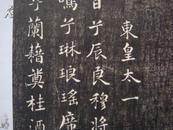 東皇太一
日兮辰良穆將
鳴兮琳琅瑤席
兮蘭藉奠桂酒